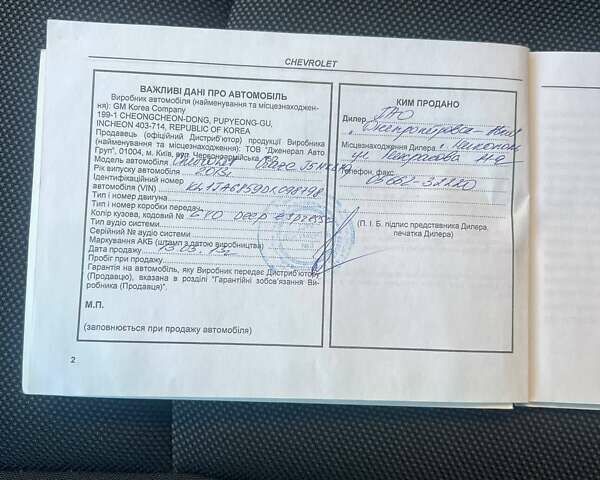 CHEVROLET
ВАЖЛИВІ ДАНІ ПРО АВТОМОБІЛЬ
Виробник автомобіля (найменування та місцезнаходжен-
ня): GM Korea Company
199-1 CHEONGCHEON-DONG, PUPYEONG-GU,
INCHEON 403-714, REPUBLIC OF KOREA
Продавець (офіційний Дистриб'ютор) продукції Виробника
(найменування та місцезнаходження): ТОВ "Дженерал Авто
Груп", 01004, м. Київ, вул. Червоноармійська
Модель автомобіля
Рік випуску автомобіля 2013г
Ідентифікаційний номер
автомобіля (VIN)
Тип і номер двигуна
Тип і номер коробки передач
Колір кузова, кодовий № deep espresso
Тип аудіо системи
Серійний № аудіо системи
Маркування АКБ (штамп з датою виробництва)
Дата продажу
Пробіг при продажу
Гарантія на автомобіль, яку Виробник передає Дистриб'ютору
(Продавцю), вказана в розділі "Гарантійні зобов'язання Ви-
робника (Продавця)".
М.П.
(заповнюється при продажу автомобіля)
2
КИМ ПРОДАНО
Дилер
Місцезнаходження Дилера г. Никополь
ул. Некрасова
Телефон, факс
(П. І. Б. підпис представника Дилера,
печатка Дилера)